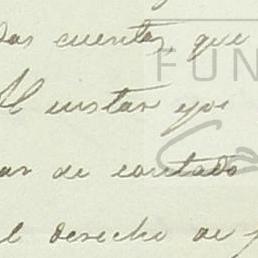 das cuentas, que
FUN
Al instar yo
ar de contado
el derecho de